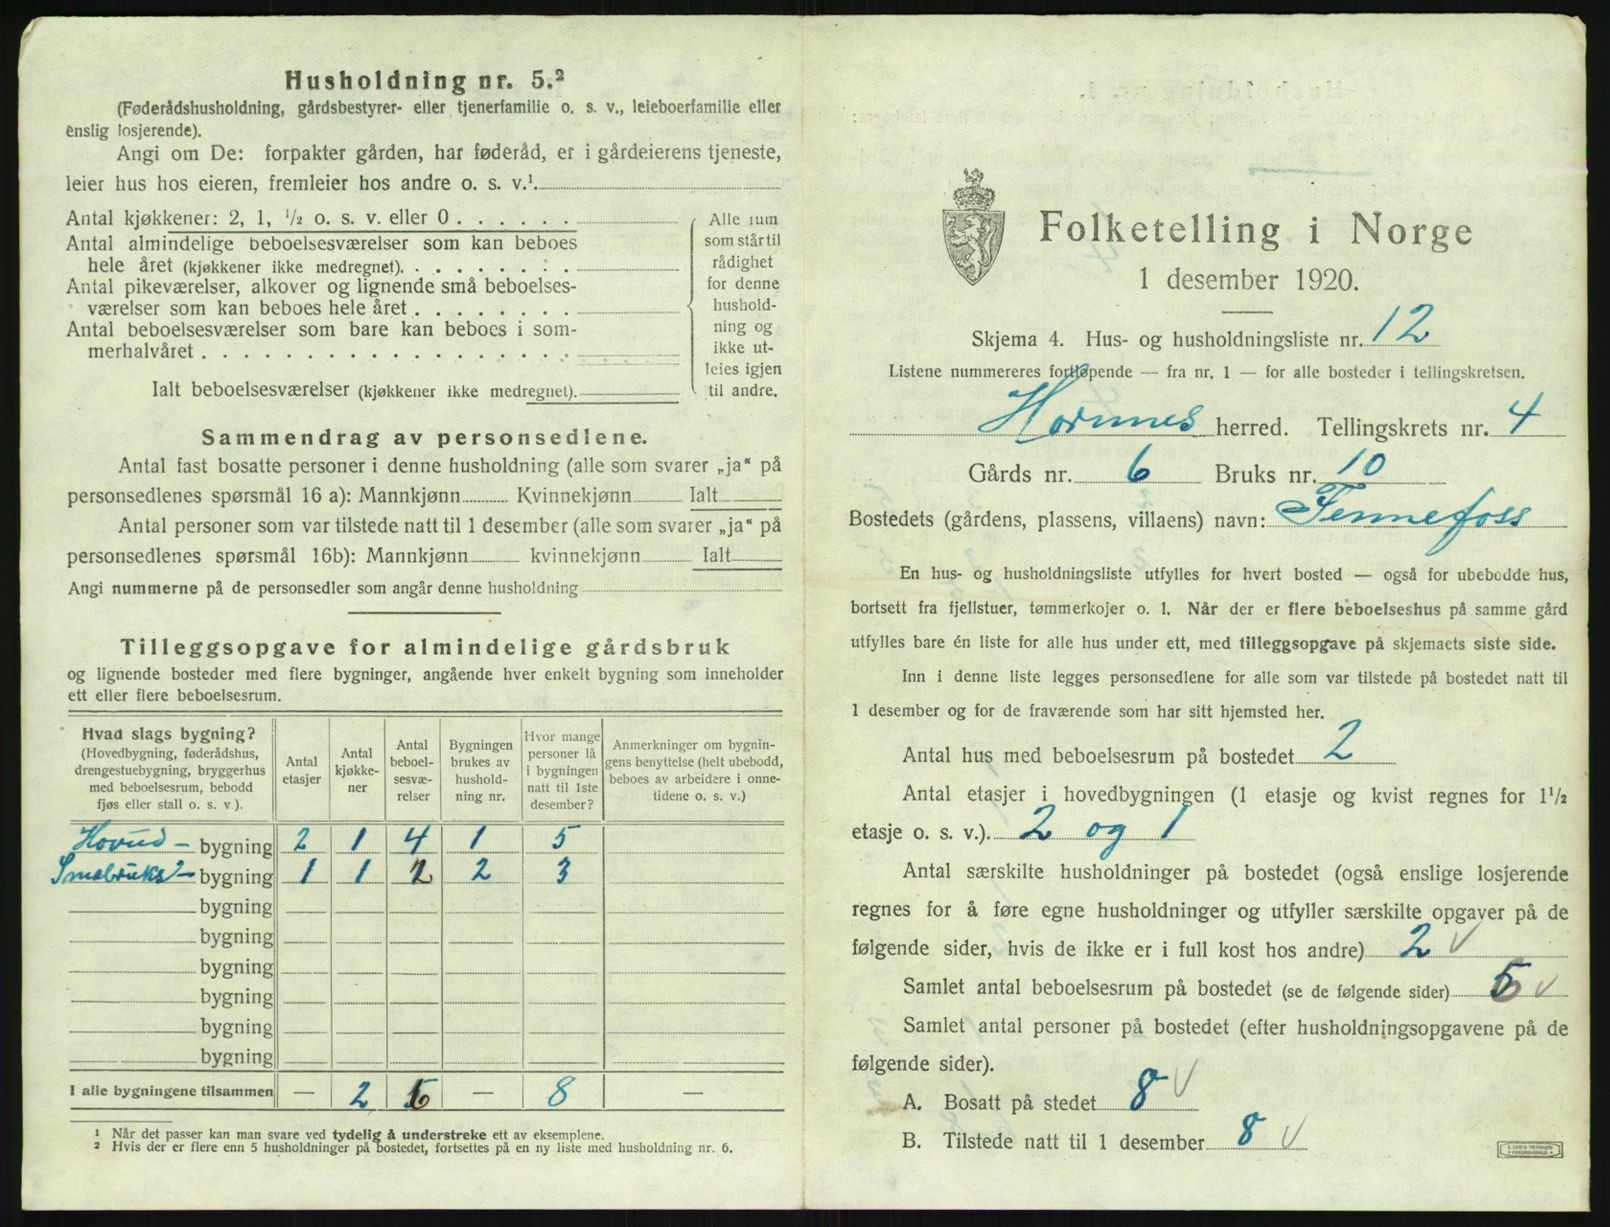 Husholdning nr. 5.²
(Føderådshusholdning, gårdsbestyrer- eller tjenerfamilie o. s. v., leieboerfamilie eller
enslig losjerende).
Angi om De: forpakter gården, har føderåd, er i gårdeierens tjeneste,
leier hus hos eieren, fremleier hos andre o. s. v.¹
Antal kjøkkener: 2, 1, ½ o. s. v. eller 0 . . . . . .
Antal almindelige beboelsesværelser som kan beboes
hele året (kjøkkener ikke medregnet). . . . . . . .
Antal pikeværelser, alkover og lignende små beboelses-
værelser som kan beboes hele året . . . . . . . .
Antal beboelsesværelser som bare kan beboes i som-
merhalvåret . . . . . . . . . . . . . . . . . .
Ialt beboelsesværelser (kjøkkener ikke medregnet).
Alle rum
som står til
rådighet
for denne
hushold-
ning og
ikke ut-
leies igjen
til andre.
Sammendrag av personsedlene.
Antal fast bosatte personer i denne husholdning (alle som svarer „ja“ på
personsedlenes spørsmål 16 a): Mannkjønn Kvinnekjønn Ialt
Antal personer som var tilstede natt til 1 desember (alle som svarer „ja“ på
personsedlenes spørsmål 16b): Mannkjønn kvinnekjønn Ialt
Angi nummerne på de personsedler som angår denne husholdning
Tilleggsopgave for almindelige gårdsbruk
og lignende bosteder med flere bygninger, angående hver enkelt bygning som inneholder
ett eller flere beboelsesrum.
Hvad slags bygning?
(Hovedbygning, føderådshus,
drengestuebygning, bryggerhus
med beboelsesrum, bebodd
fjøs eller stall o. s. v.).
Antal
etasjer
Antal
kjøkke-
ner
Antal
beboel-
sesvæ-
relser
Bygningen
brukes av
hushold-
ning nr.
Hvor mange
personer lå
i bygningen
natt til 1ste
desember?
Anmerkninger om bygnin-
gens benyttelse (helt ubebodd,
beboes av arbeidere i onne-
tidene o. s. v.)
Hovud- bygning 2 1 4 1 5
Smabruks- bygning 1 1 2 2 3
bygning
bygning
bygning
bygning
bygning
bygning
I alle bygningene tilsammen — 2 6 — 8 —
¹ Når det passer kan man svare ved tydelig å understreke ett av eksemplene.
² Hvis der er flere enn 5 husholdninger på bostedet, fortsettes på en ny liste med husholdning nr. 6.
Folketelling i Norge
1 desember 1920.
Skjema 4. Hus- og husholdningsliste nr. 12
Listene nummereres fortløpende — fra nr. 1 — for alle bosteder i tellingskretsen.
Hornnes herred. Tellingskrets nr. 4
Gårds nr. 6 Bruks nr. 10
Bostedets (gårdens, plassens, villaens) navn: Fennefoss
En hus- og husholdningsliste utfylles for hvert bosted — også for ubebodde hus,
bortsett fra fjellstuer, tømmerkojer o. l. Når der er flere beboelseshus på samme gård
utfylles bare én liste for alle hus under ett, med tilleggsopgave på skjemaets siste side.
Inn i denne liste legges personsedlene for alle som var tilstede på bostedet natt til
1 desember og for de fraværende som har sitt hjemsted her.
Antal hus med beboelsesrum på bostedet 2
Antal etasjer i hovedbygningen (1 etasje og kvist regnes for 1½
etasje o. s. v.). 2 og 1
Antal særskilte husholdninger på bostedet (også enslige losjerende
regnes for å føre egne husholdninger og utfyller særskilte opgaver på de
følgende sider, hvis de ikke er i full kost hos andre) 2 √
Samlet antal beboelsesrum på bostedet (se de følgende sider) 6 √
Samlet antal personer på bostedet (efter husholdningsopgavene på de
følgende sider).
A. Bosatt på stedet 8 √
B. Tilstede natt til 1 desember 8 √